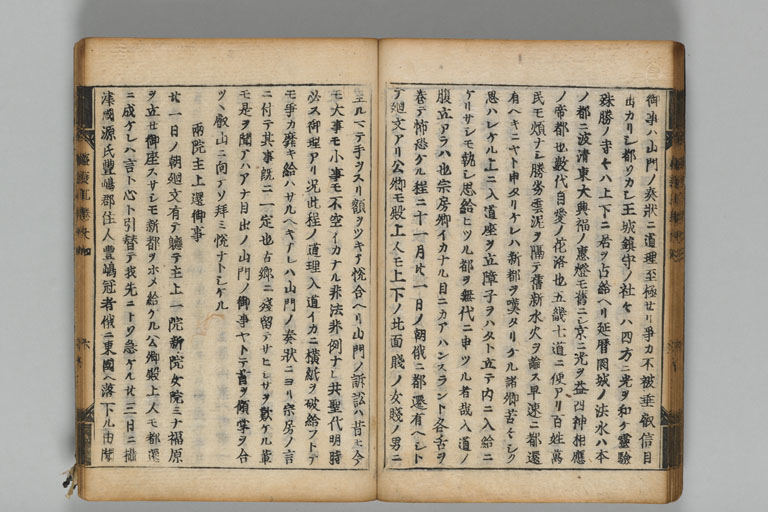 御事ハ山門ノ奏狀ニ道理至極せリ爭カ不被垂叡信目
出カリシ都ソカシ王城鎮守ノ社々ハ四方ニ光ヲ和ケ靈驗
殊勝ノ寺々ハ上下ニ居ヲ占給ヘリ延暦園城ノ法水ハ本
ノ都ニ波清東大興福ノ惠燈モ舊ニシ京ニ光ヲ益四神相應
ノ帝都也數代自愛ノ花洛也五畿七道ニ便アリ百姓萬
民モ煩ナシ勝劣雲泥ヲ隔テ舊新水火ヲ論ス早速ニ都還
有ヘキニヤト申タリケレハ新都ヲ嘆タリケル諸卿苦々シク
思ハレケル上ニ入道座ヲ立障子ヲハタト立テ内ニ入給ニ
ケリサシモ執シ思給ヒツル都ヲ無代ニ申ツル者哉入道ノ
腹立アラハ也宗房卿イカナル目ニカアハンスラント各舌ヲ
卷テ怖恐ケル程ニ十一月廿一日ノ朝俄ニ都還有ヘシト
テ廻文アリ公卿モ殿上人モ上下ノ北面賤ノ女賤ノ男ニ
至ルマテ手ヲスリ額ヲツキテ悅合ヘリ山門ノ訴訟ハ昔モ今
モ大事モ小事モ不空イカナル非法非例ナレ共聖代明時
必ス御理アリ况此程ノ道理入道イカニ横紙ヲ破給フトテ
モ爭カ靡キ給ハサルヘキナレハ山門ノ奏狀ニヨリ宗房ノ言
ニ付テ其事既ニ一定也古郷ニ殘留テサヒシサヲ歎ケル輩
モ是ヲ聞アハアナ目出ノ山門ノ御事ヤトテ首ヲ傾掌ヲ合
ツヽ叡山ニ向テソ拜ミ悅ナトシケル
兩院主上還御事
廿一日ノ朝廻文有テ軈テ主上一院新院女院ミナ福原
ヲ立せ御座スサシモ新都ヲホメ給ケル公卿殿上人モ都還
ニ成ケレハ言ト心ト引替テ我先ニトソ急ケル廿三日ニ攝
津國源氏豐嶋郡住人豐嶋冠者俄ニ東國ヘ落下ル由聞